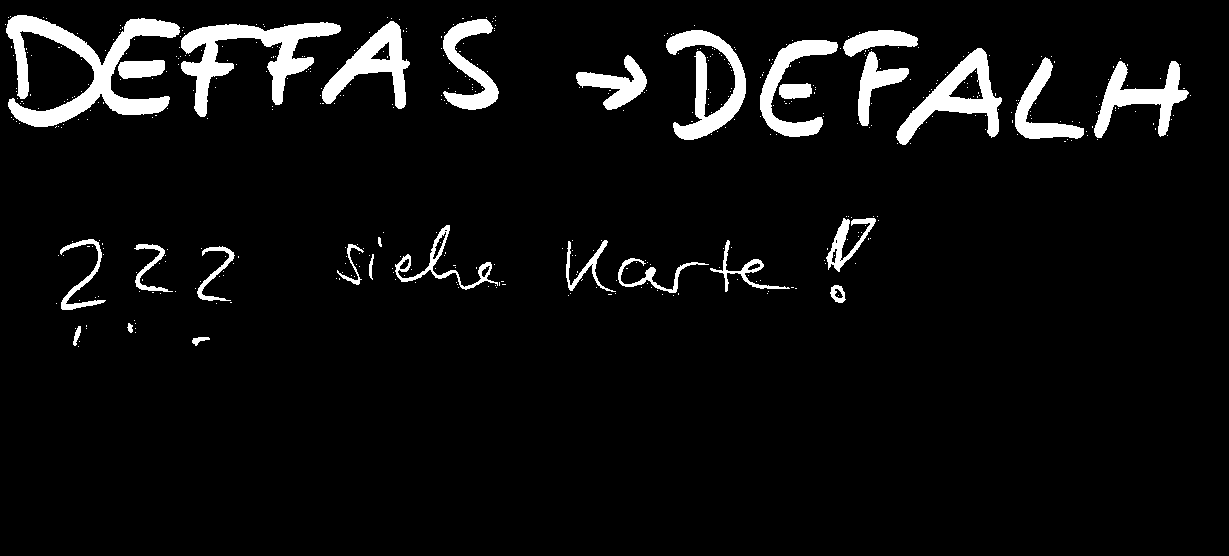 DEFFAS → DEFALH
??? siehe Karte!